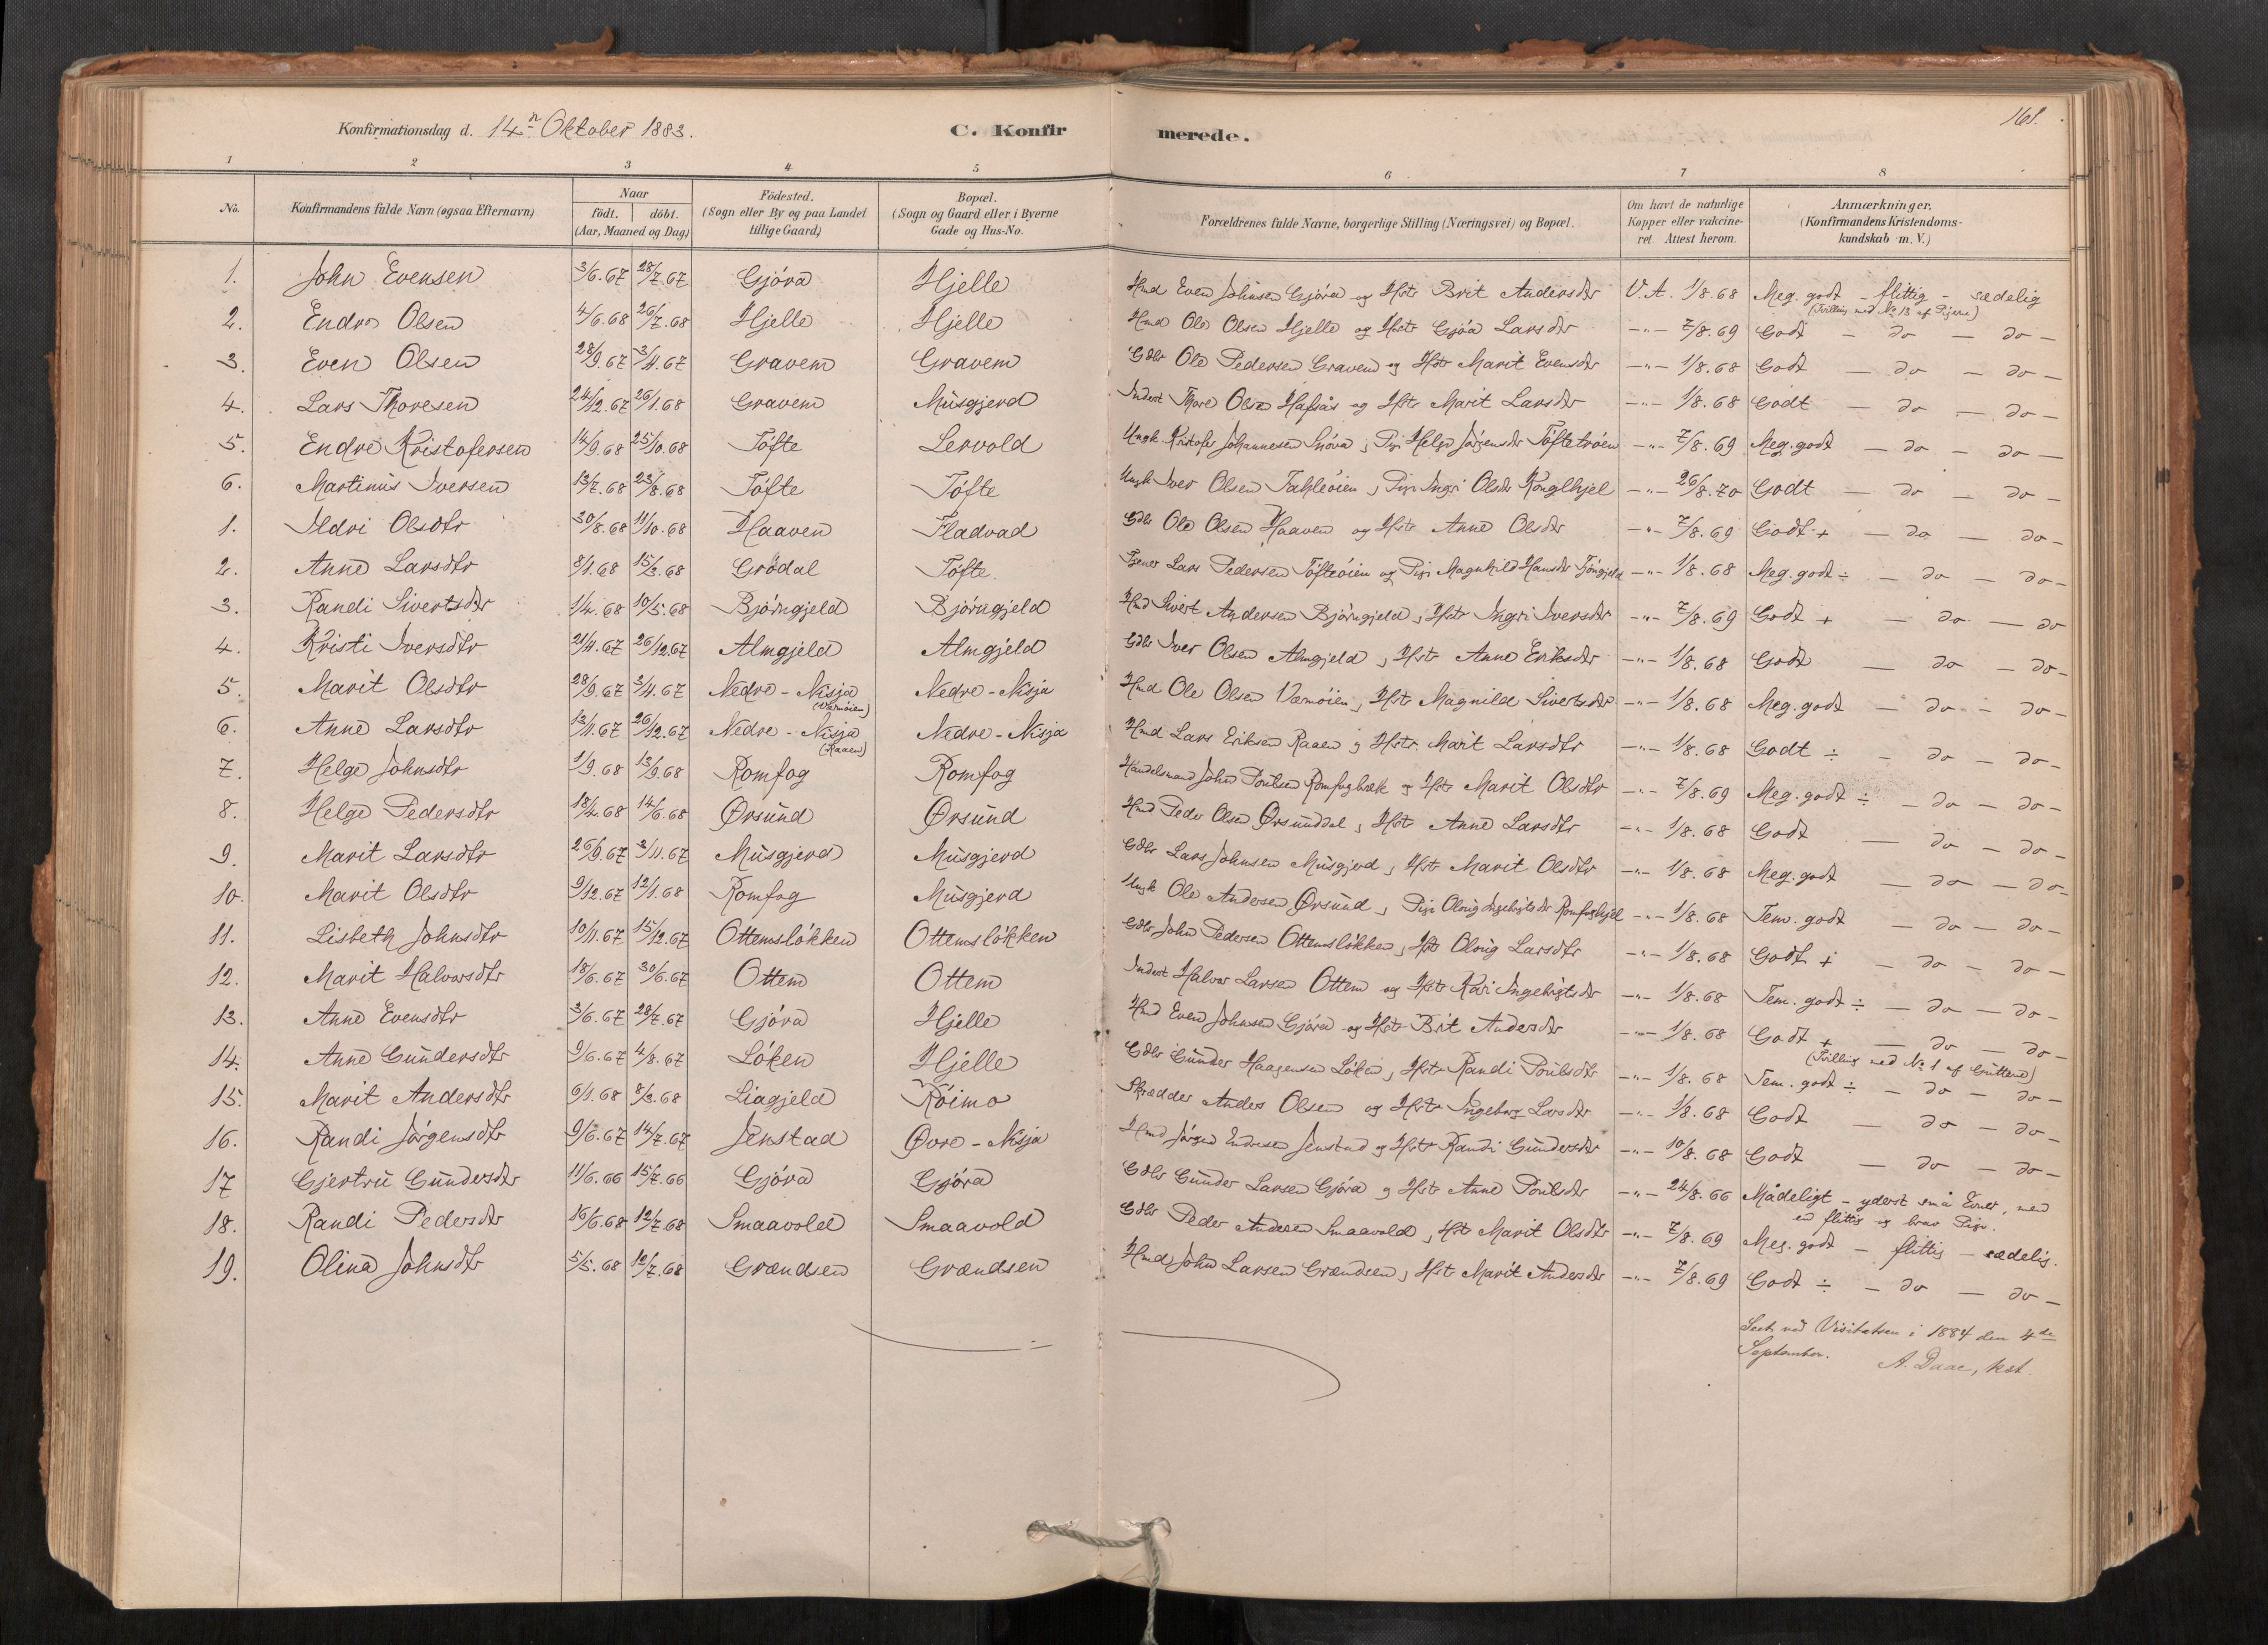 161.
Konfirmationsdag d. 14n Oktober 1883. C. Konfirmerede.
1 2 3 4 5 6 7 8
No. Konfirmandens fulde Navn (ogsaa Efternavn) Naar födt. döbt. (Aar, Maaned og Dag) Födested. (Sogn eller By og paa Landet tillige Gaard) Bopæl. (Sogn og Gaard eller i Byerne Gade og Hus-No. Forældrenes fulde Navne, borgerlige Stilling (Næringsvei) og Bopæl. Om havt de naturlige Kopper eller vakcineret. Attest herom. Anmærkninger. (Konfirmandens Kristendomskundskab m. V.)
1. John Evensen 3/6.67 28/7.67 Gjóra Hjelle Hmd Even Johnsen Gjóra og Hstr Brit Andersdtr V.A. 1/8.68 Meg. godt - flittig - sædelig
(Tvilling med No 13 af Pigerne)
2. Endre Olsen 4/6.68 26/7.68 Hjelle Hjelle Hmd Ole Olsen Hjelle og Hstr Gjóa Larsdtr -"- 7/8.69 Godt - do - do -
3. Even Olsen 28/9.67 3/11.67 Gravem Gravem Gdbr Ole Pedersen Gravem og Hstr Marit Evensdtr -"- 1/8.68 Godt - do - do -
4. Lars Thoresen 24/12.67 26/1.68 Gravem Músgjerd Inderst Thore Olsen Hafsås og Hstr Marit Larsdtr -"- 1/8.68 Godt - do - do -
5. Endre Kristofersen 14/9.68 25/10.68 Tófte Lervold Ungk. Kristofer Johannesen, Pige Helge Jörgensdtr Tóftetróen -"- 7/8.69 Meg. godt - do - do -
6. Martinús Iversen 13/7.68 23/8.68 Tófte Tófte Ungk Iver Olsen, Pige Ingri Olsdtr -"- 26/8.70 Godt - do - do -
1. Ildri Olsdtr 30/8.68 11/10.68 Haaven Fladvad Gdbr Ole Olsen Haaven og Hstr Anne Olsdtr -"- 7/8.69 Godt + - do - do -
2. Anne Larsdtr 8/1.68 15/3.68 Grödal Tófte. Tjener Lars Pedersen Tófteóien og Pige Magnhild Hansdtr -"- 1/8.68 Meg. godt ÷ - do - do -
3. Randi Sivertsdtr 1/4.68 10/5.68 Bjórngjeld Bjórngjeld Hmd Sivert Andersen Bjórngjeld, Hstr Ingri Iversdtr -"- 7/8.69 Godt + - do - do
4. Kristi Iversdtr 21/11.67 26/12.67 Almgjeld Almgjeld Gdbr Iver Olsen Almgjeld, Hstr Anne Eriksdtr -"- 1/8.68 Godt - do - do -
5. Marit Olsdtr 28/9.67 3/11.67 Nedre-Nisja (Værnóien) Nedre-Nisja Hmd Ole Olsen Værnóien, Hstr Magnild Sivertsdtr -"- 1/8.68 Meg. godt - do - do -
6. Anne Larsdtr 13/11.67 26/12.67 Nedre-Nisja (Raaen) Nedre-Nisja Hmd Lars Eriksen Raaen og Hstr. Marit Larsdtr -"- 1/8.68 Godt ÷ - do - do -
7. Helge Johnsdtr 1/9.68 13/9.68 Romfog Romfog Handelsmand John Poúlsen Romfogbæk og Hstr Marit Olsdtr -"- 7/8.69 Meg. godt ÷ - do - do -
8. Helge Pedersdtr 18/4.68 14/6.68 Ørsúnd Ørsúnd Hmd Peder Olsen Ørsúnddal, Hstr Anne Larsdtr -"- 1/8.68 Godt - do - do -
9. Marit Larsdtr 26/9.67 3/11.67 Músgjerd Músgjerd Gdbr Lars Johnsen Músgjerd, Hstr Marit Olsdtr -"- 1/8.68 Meg. godt - do - do -
10. Marit Olsdtr 9/12.67 12/1.68 Romfog Músgjerd Ungk Ole Andersen Ørsúnd, Pige Oloug Ingebrigtsdtr Romfoghjel -"- 1/8.68 Tem. godt - do - do -
11. Lisbeth Johnsdtr 10/11.67 15/12.67 Ottemslókken Ottemslókken Gdbr John Pedersen Ottemslókken, Hstr Oloúg Larsdtr -"- 1/8.68 Godt + - do - do -
12. Marit Halvorsdtr 18/6.67 30/6.67 Ottem Ottem Inderst Halvor Larsen Ottem og Hstr Kari Ingebrigtsdtr -"- 1/8.68 Tem. godt ÷ - do - do -
13. Anne Evensdtr 3/6.67 28/7.67 Gjóra Hjelle Hmd Even Johnsen Gjóra og Hstr Brit Andersdtr -"- 1/8.68 Godt + - do - do -
(Tvilling med No 1 af Gúttene)
14. Anne Gúndersdtr 9/6.67 4/8.67 Lóken Hjelle Gdbr Gúnder Haagensen Lóken, Hstr Randi Poúlsdtr -"- 1/8.68 Tem. godt ÷ - do - do -
15. Marit Andersdtr 6/1.68 8/3.68 Liagjeld Róimo Skrædder Anders Olsen og Hstr Ingeborg Larsdtr -"- 1/8.68 Godt - do - do -
16. Randi Jórgensdtr 9/6.67 14/7.67 Jenstad Øvre-Nisja Hmd Jórgen Endresen Jenstad og Hstr Randi Gúndersdtr -"- 10/8.68 Godt - do - do -
17 Gjertrú Gúndersdtr 11/6.66 15/7.66 Gjóra Gjóra Gdbr Gúnder Larsen Gjóra og Hstr Anne Poúlsdtr -"- 24/8.66 Mådeligt - yderst små Evner, men
en flittig og brav Pige.
18. Randi Pedersdtr 16/6.68 12/7.68 Smaavold Smaavold Gdbr Peder Andersen Smaavold, Hstr Marit Olsdtr -"- 7/8.69 Meg. godt - flittig - sædelig.
19. Olina Johnsdtr 5/5.68 12/7.68 Grændsen Grændsen Hmd John Larsen Grændsen, Hstr Marit Andersdtr -"- 7/8.69 Godt ÷ - do - do -
Seet ved Visitatsen i 1884 den 4de
September. A. Daae, kst.